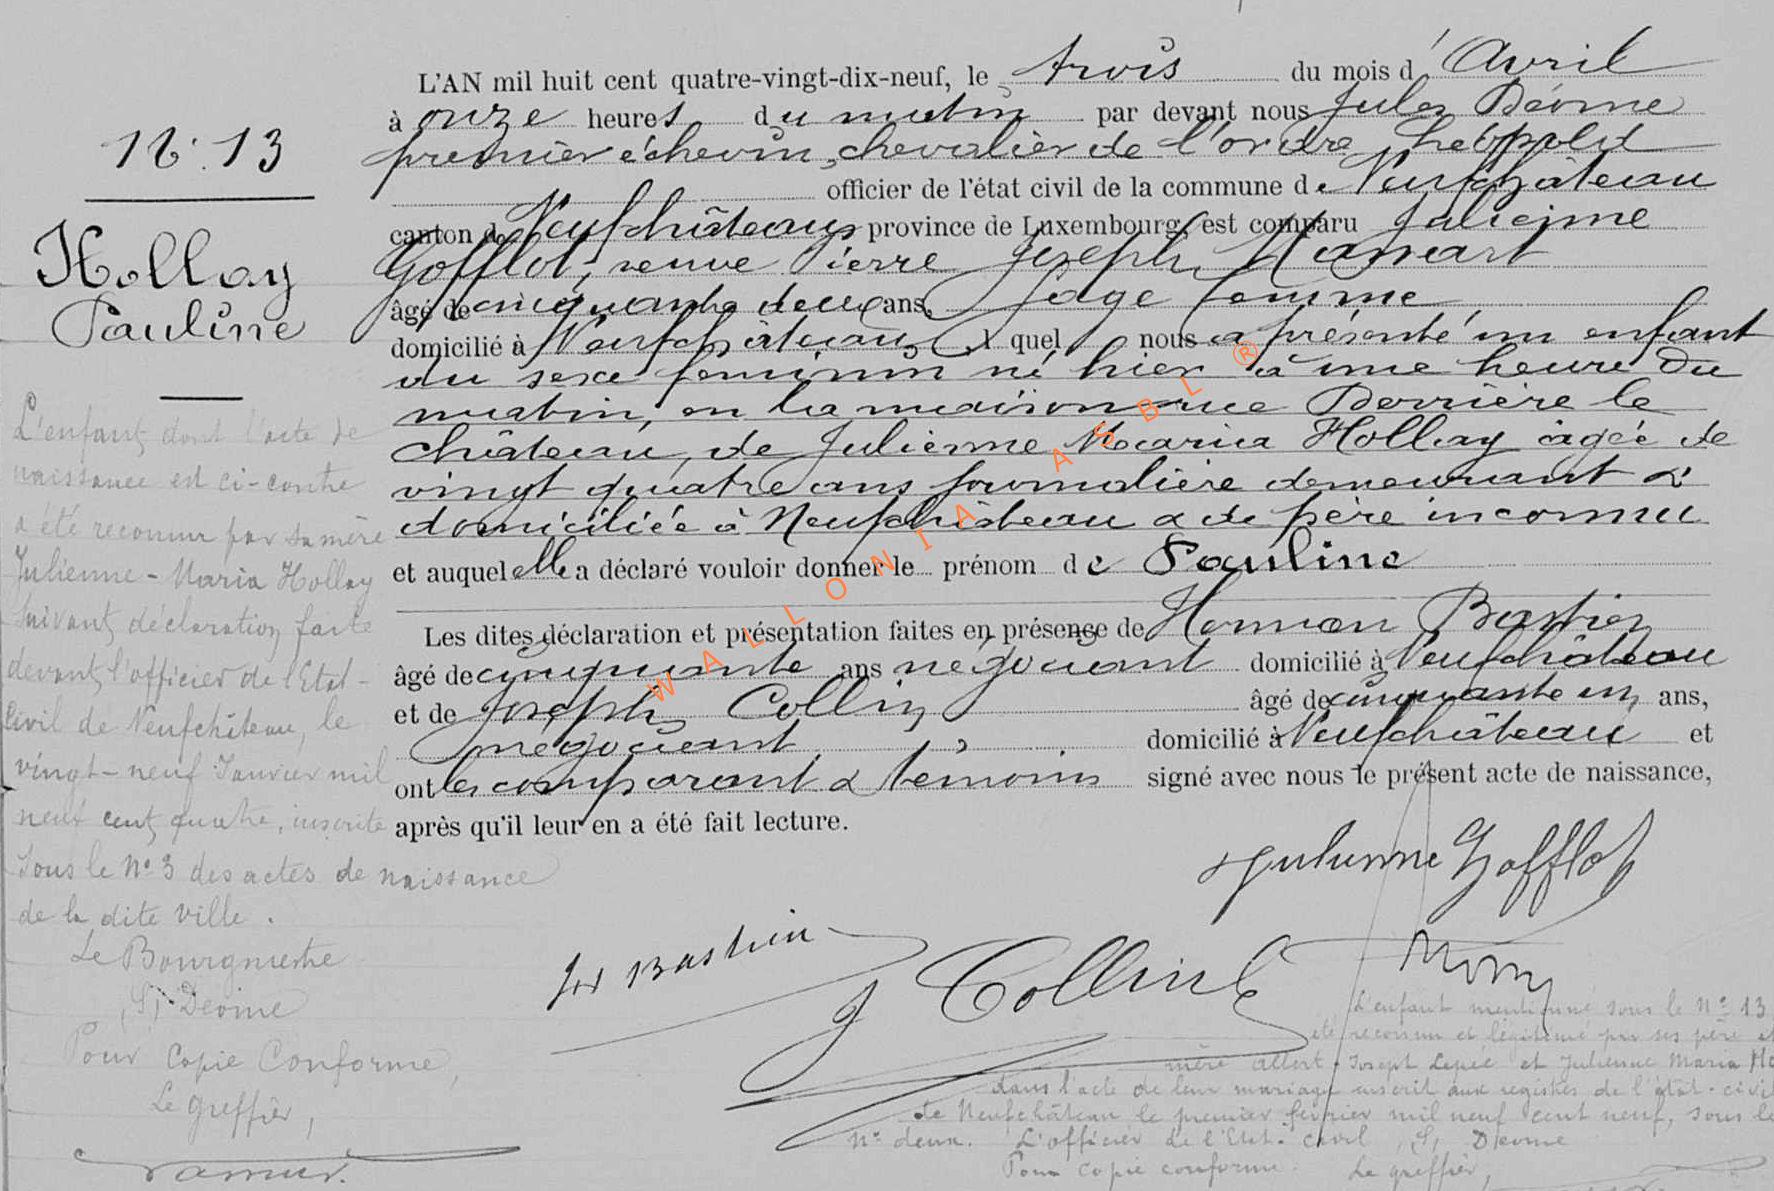 N° 13
Hollay
Pauline
L'AN mil huit cent quatre-vingt-dix-neuf, le trois du mois d'Avril
à onze heures du matin par devant nous Jules Déome
premier échevin, chevalier de l'ordre Léopold
officier de l'état civil de la commune de Neufchâteau
canton de Neufchâteau province de Luxembourg, est comparu Julienne
Gofflot, veuve Pierre Joseph
âgé de cinquante deux ans, sage femme,
domicilié à Neufchâteau, quel nous a présenté un enfant
du sexe féminin né hier à une heure du
matin, en la maison rue Derrière le
château, de Julienne Maria Hollay âgée de
vingt quatre ans journalière demeurant &
domiciliée à Neufchâteau & de père inconnu
et auquel elle a déclaré vouloir donner le prénom de Pauline
Les dites déclaration et présentation faites en présence de Herman Bastien
âgé de cinquante ans négociant domicilié à Neufchâteau
et de Joseph Collin âgé de cinquante un ans,
négociant, domicilié à Neufchâteau et
ont les comparant & témoins signé avec nous le présent acte de naissance,
après qu'il leur en a été fait lecture.
Julienne Gofflot
Bastien
J Collin
L'enfant dont l'acte de
naissance est ci-contre
a été reconnu par sa mère
Julienne-Maria Hollay
suivant déclaration faite
devant l'officier de l'Etat-
Civil de Neufchâteau, le
vingt-neuf Janvier mil
neuf cent quatre, inscrite
sous le N° 3 des actes de naissance
de la dite ville.
Le Bourgmestre
(S) Déome
Pour Copie Conforme,
Le greffier,
L'enfant mentionné sous le N° 13
été reconnu et légitimé par ses père et
mère Albert-Joseph Lepée et Julienne Maria Ho
dans l'acte de leur mariage inscrit aux registres de l'état-civil
de Neufchâteau le premier février mil neuf cent neuf, sous le
N° deux. L'officier de l'Etat-civil (S) Déome
Pour copie conforme.
Le greffier,
WALLONIA ASBL ®